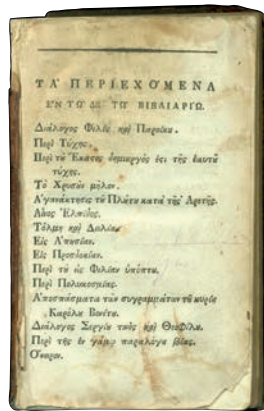 ΤΑ' ΠΕΡΙΕΧΟ'ΜΕΝΑ
ἘΝ ΤΩ͂ΔΕ ΤΩ͂ ΒΙΒΛΙΑΡΙΩ.
Διάλογος Φιλίας καὶ Παροίκου.
Περὶ Τύχης.
Περὶ τοῦ Ἕκαςος δημιεργός ἐςι τῆς ἑαυτοῦ
τύχης.
Τὸ Χρυσοῦν μῆλον.
Ἀγανάκτησις τοῦ Πλάτου κατὰ τῆς Ἀρετῆς.
Ἐλπίδος.
Τόλμη καὶ Δειλία
Εἰς Ἀπουσίαν.
Εἰς Προσδοκίαν.
Περὶ τοῦ ὡς Φιλίαν ὑπόπτου.
Περὶ Πολυκοσμίας.
Ἀποσπάσματα τῶν συγραμμάτων τοῦ κυρίε
Καρόλου Βονέτου.
Διάλογος Σεργίου τινὸς καὶ Θεοφίλου.
Περὶ τῆς ἐν γάμῳ παραλόγου βίας.
Ὄνειρον.